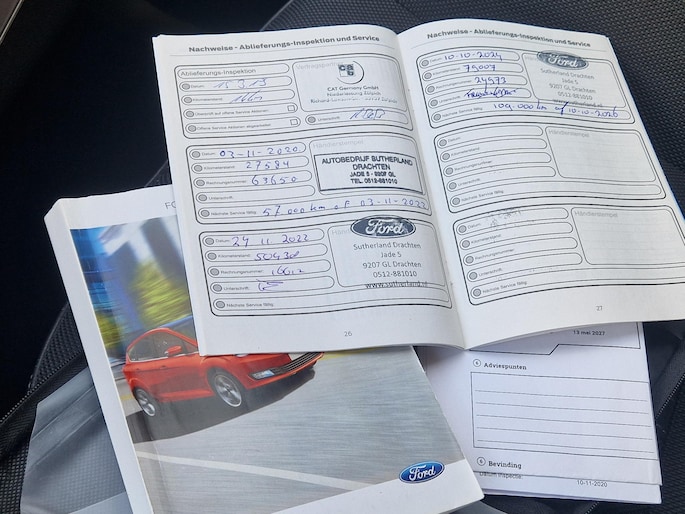 Nachweise - Ablieferungs-Inspektion und Service
Ablieferungs-Inspektion
Datum:
Kilometerstand:
Offene Service Aktionen abgefragt:
Unterschrift:
CAT Germany GmbH
Datum: 03-11-2020
Kilometerstand: 27584
Rechnungsnummer: 63650
Unterschrift:
Nächste Service fällig: 57.000 km of 03-11-2022
AUTOBEDRIJF SUTHERLAND
DRACHTEN
JADE 5 - 9207 GL
TEL. 0512-881010
Datum: 24 11 2022
Kilometerstand: 50430
Rechnungsnummer:
Unterschrift:
Nächste Service fällig:
Ford
Sutherland Drachten
Jade 5
9207 GL Drachten
0512-881010
www.sutherland.nl
26
Nachweise - Ablieferungs-Inspektion und Service
Datum: 10-10-2024
Kilometerstand: 79007
Rechnungsnummer: 24973
Unterschrift:
Nächste Service fällig: 109.000 km of 10-10-2026
Ford
Sutherland Drachten
Jade 5
9207 GL Drachten
0512-881010
Datum:
Kilometerstand:
Rechnungsnummer:
Unterschrift:
Nächste Service fällig:
Händlerstempel
Datum:
Kilometerstand:
Rechnungsnummer:
Unterschrift:
Nächste Service fällig:
Händlerstempel
27
FO
Ford
13 mei 2027
Adviespunten
Bevinding
Datum inspectie
10-11-2020